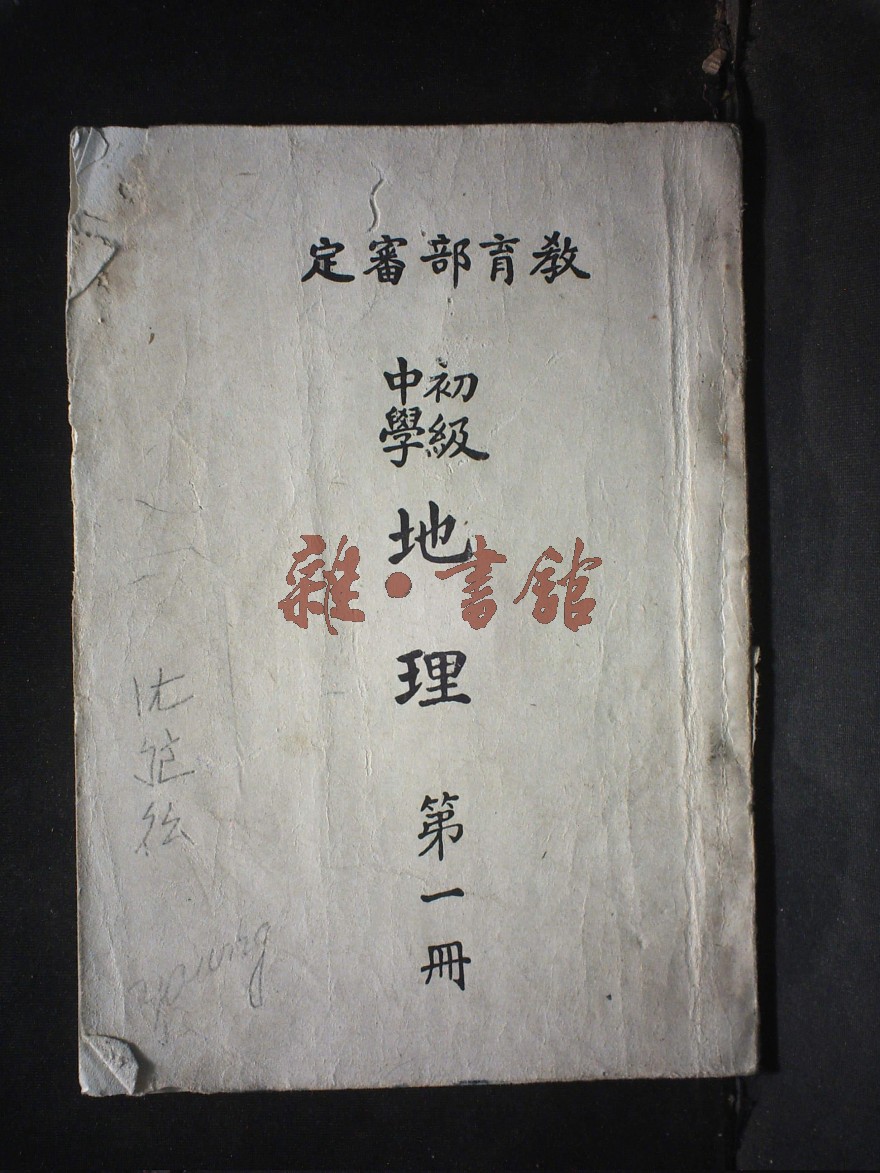 教育部審定
初級
中學
地理 第一冊
雜·書館
young